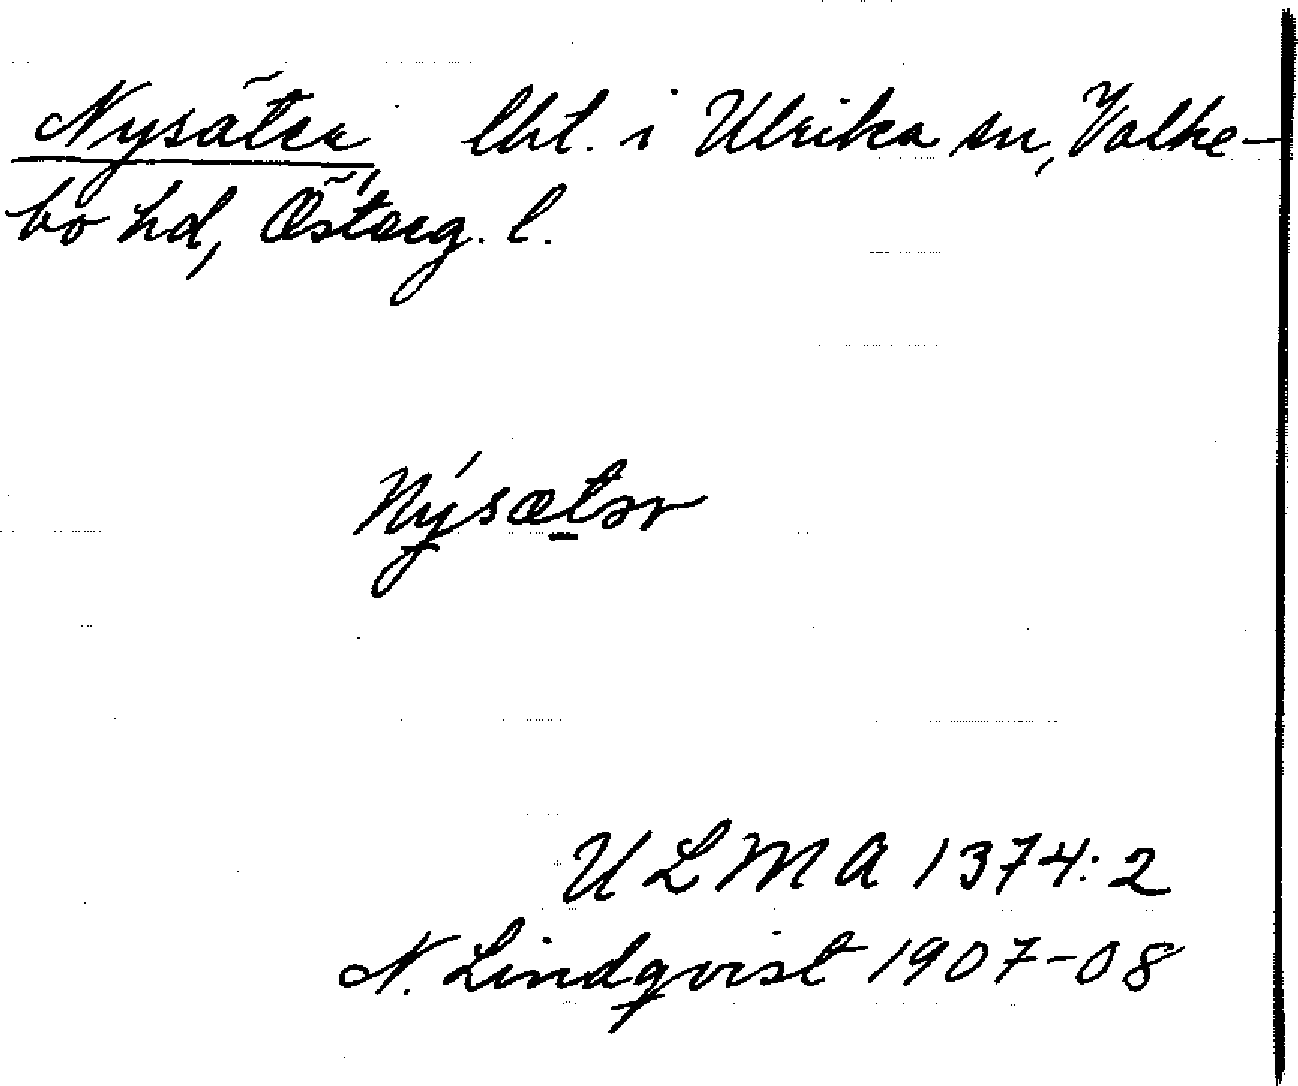 Nysätra, lht. i Ulrika sn, Valke-
bo hd, Österg. l.
Nýsætər
ULMA 1374:2
N. Lindqvist 1907-08